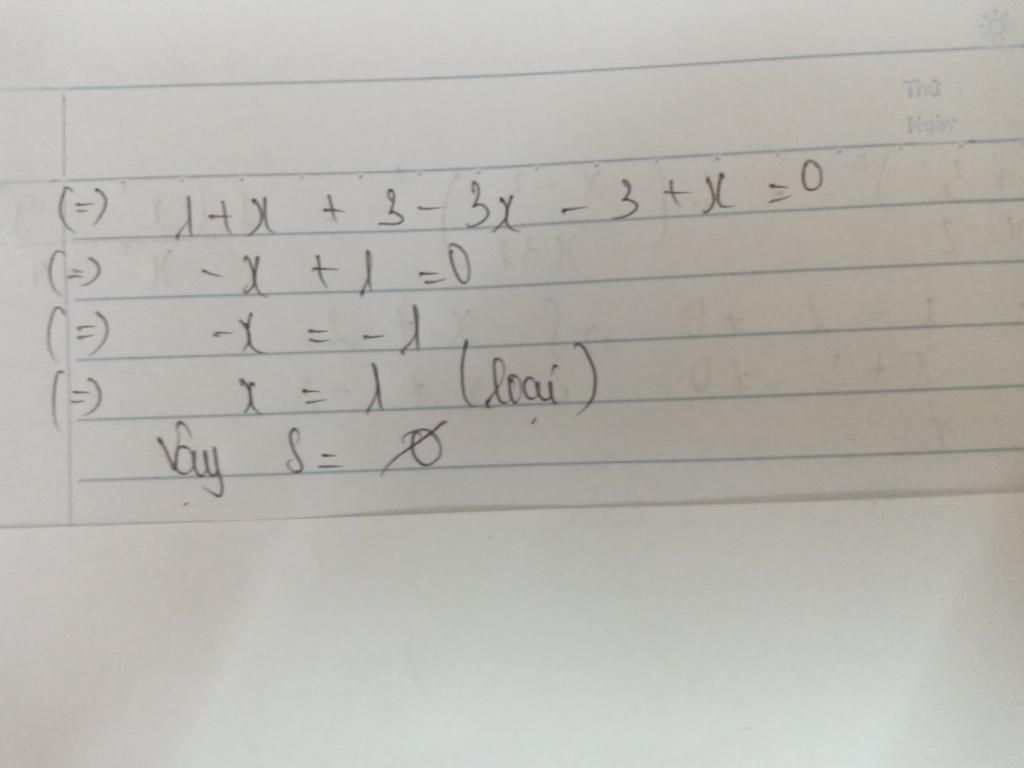 Thứ
Ngày
(=) 1+x + 3 - 3x - 3 + x = 0
(=) - x + 1 = 0
(=) -x = - 1
(=) x = 1 (loại)
Vậy S = ∅